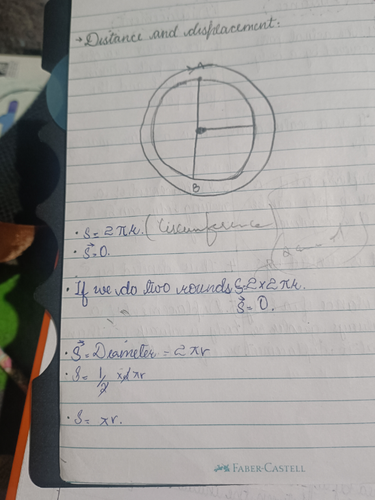 → Distance and displacement.
A
B
• S = 2πr. (Circumference)
• S⃗ = 0.
• If we do two rounds S = 2×2πr.
S⃗ = 0.
• S⃗ = Diameter = 2πr
• S = 1/2 × 2πr
• S = πr.
FABER-CASTELL